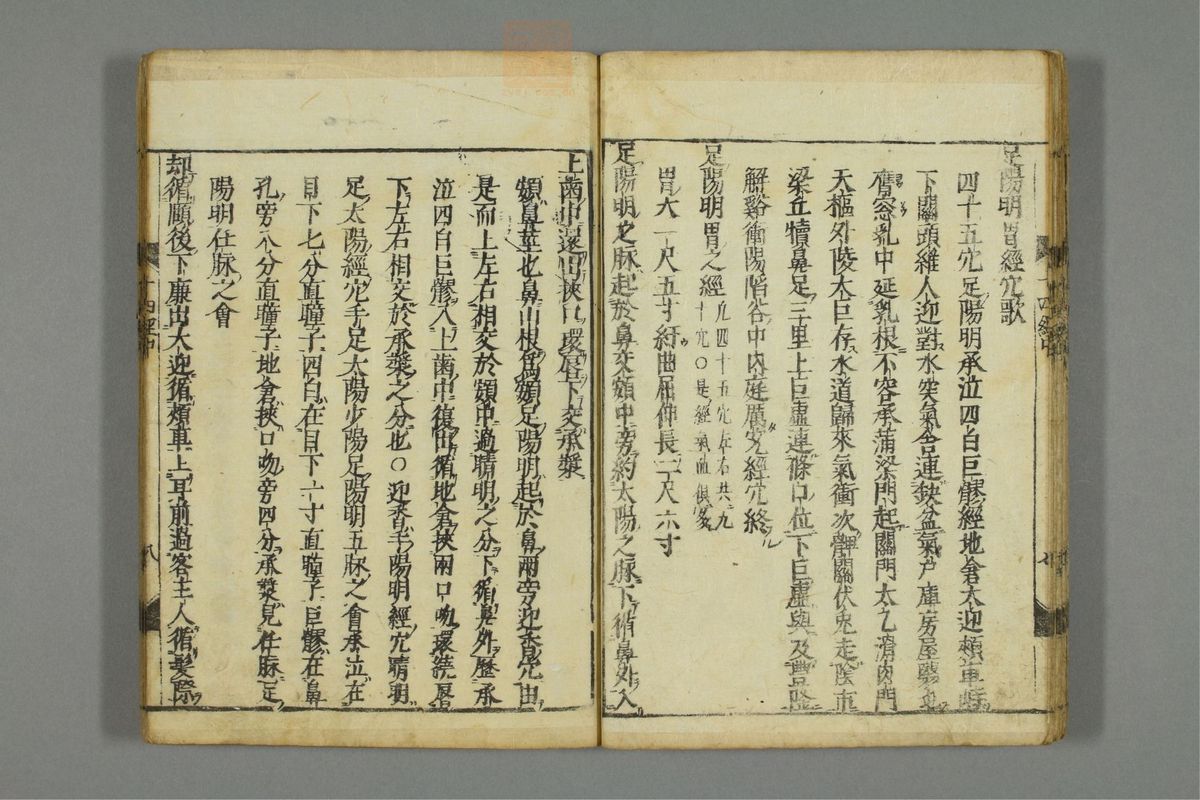 足陽明胃經穴歌
四十五穴足陽明承泣四白巨髎經地倉大迎頰車
下關頭維人迎對水突氣舍連缺盆氣戶庫房屋翳
膺窓乳中延乳根不容承滿梁門起關門太乙滑肉門
天樞外陵大巨存水道歸來氣衝次髀關伏兎走陰市
梁丘犢鼻足三里上巨虛連條口位下巨虛與及豐隆
解谿衝陽陷谷中內庭厲兌經穴終
足陽明胃之經
凡四十五穴左右共九
十穴○是經氣血俱多
胃大一尺五寸紆曲屈伸長二尺六寸
足陽明之脉起於鼻交頞中旁約太陽之脉下循鼻外入
上齒中還出挾口環唇下交承漿
頞鼻莖也鼻山根爲頞足陽明起於鼻兩旁迎香穴由
是而上左右相交於頞中過睛明之分下循鼻外歷承
泣四白巨髎入上齒中復出循地倉挾兩口吻環繞唇
下左右相交於承漿之分也○迎香手陽明經穴睛明
足太陽經穴手足太陽少陽足陽明五脉之會承泣在
目下七分直瞳子四白在目下一寸直瞳子巨髎在鼻
孔旁八分直瞳子地倉挾口吻旁四分承漿見任脉足
陽明任脉之會
却循頤後下廉出大迎循頰車上耳前過客主人循髮際
十四經中
七
十四經中
八